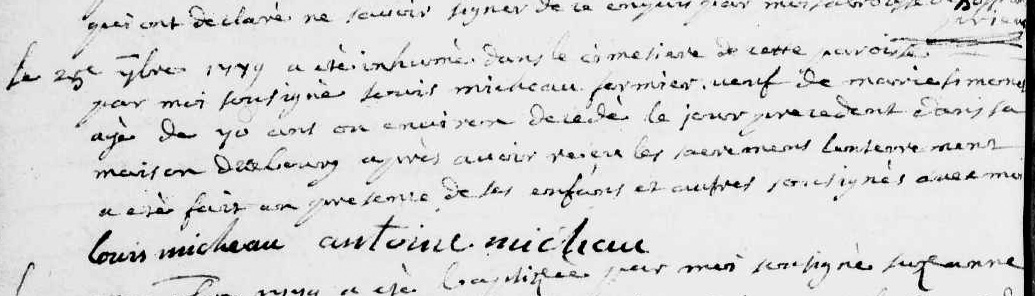 qui ont declaré ne savoir signer de ce enquis par moi
le 25e 7bre 1779 a été inhumé dans le cimetiere de cette paroisse
par moi sousigné louis micheau fermier veuf de marrie simonet
agé de 70 ans on environ decedé le jour precedent dans sa
maison du bourg après avoir receu les sacremens lenterrement
a eté fait en presence de ses enfans et autres sousignés avec moi
louis micheau antoine micheau
1779 a eté baptisée par moi sousigné suzanne